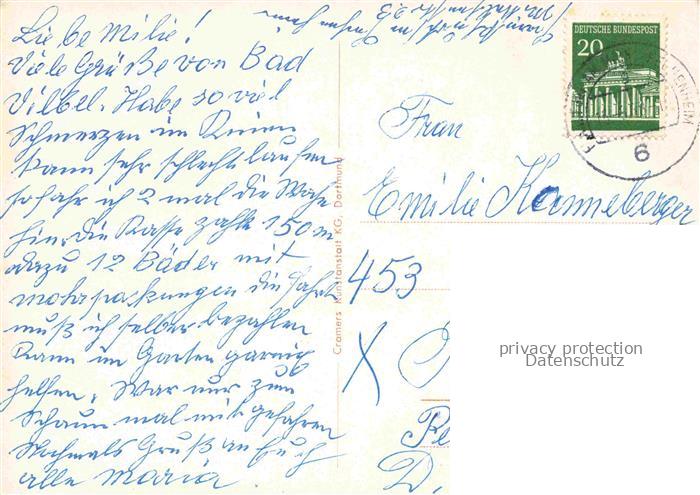 Liebe Milie!
Viele Grüße von Bad
Vilbel. Habe so viel
Schmerzen im Knien
kann sehr schlecht laufen
so fahr ich 2 mal die Woche
hin. die Kasse zahlt 150 M
dazu 12 Bäder mit
mohrpackungen die Fahrt
muß ich selber bezahlen
Kann im Garten garnig
helfen. War nur zum
Schaun mal mitgefahren
Nochmals Gruß an Euch
alle Maria
Cramers Kunstanstalt KG. Dortmund
DEUTSCHE BUNDESPOST
20
6
Frau
Emilie Kanneberger
453
privacy protection
Datenschutz